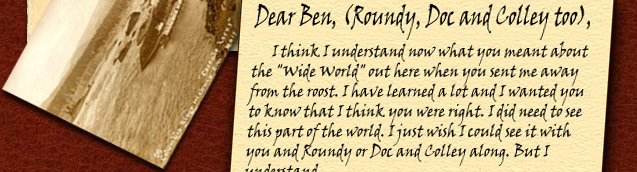 Dear Ben, (Roundy, Doc and Colley too),
I think I understand now what you meant about
the "Wide World" out here when you sent me away
from the roost. I have learned a lot and I wanted you
to know that I think you were right. I did need to see
this part of the world. I just wish I could see it with
you and Roundy or Doc and Colley along. But I
understand